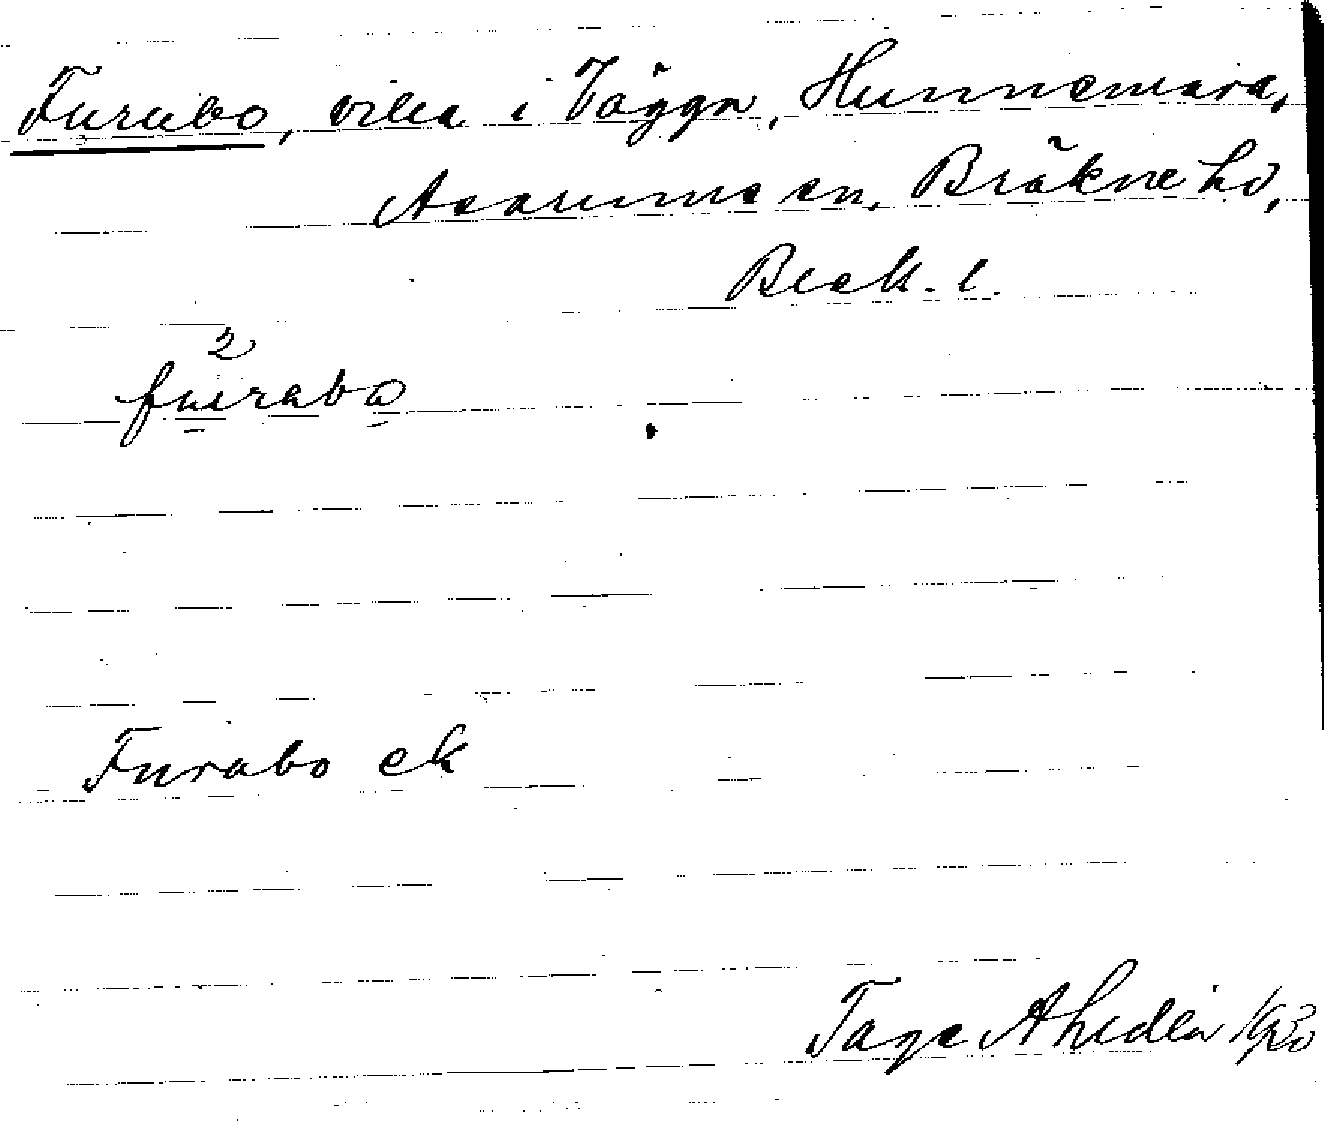 Furabo, villa i Väggn, Hunnemara,
Asarums sn, Bräkne hd,
Blek. l.
2
furabo
Furabo ek
Tage Ahldén 1930